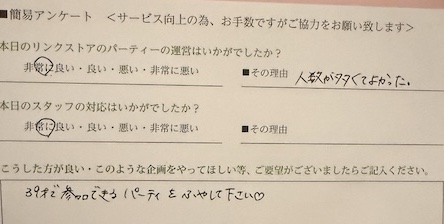 ■簡易アンケート <サービス向上の為、お手数ですがご協力をお願い致します>
本日のリンクストアのパーティーの運営はいかがでしたか?
非常に良い・良い・悪い・非常に悪い ■その理由 人数が多くてよかった。
本日のスタッフの対応はいかがでしたか?
非常に良い・良い・悪い・非常に悪い ■その理由
こうした方が良い・このような企画をやってほしい等、ご要望がございましたらご記入ください。
39才で参加できるパーティをふやして下さい♡